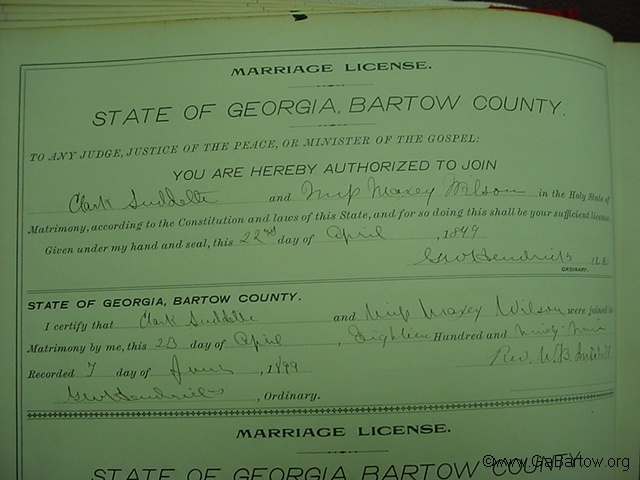 MARRIAGE LICENSE.
STATE OF GEORGIA, BARTOW COUNTY.
TO ANY JUDGE, JUSTICE OF THE PEACE, OR MINISTER OF THE GOSPEL:
YOU ARE HEREBY AUTHORIZED TO JOIN
Clark Suddette and Miss Maxey Wilson in the Holy State of
Matrimony, according to the Constitution and laws of this State, and for so doing this shall be your sufficient license
Given under my hand and seal, this 22nd day of April, 1899
GW Hendricks (L.S
ORDINARY.
STATE OF GEORGIA, BARTOW COUNTY.
I certify that Clark Suddette and Miss Maxey Wilson were joined in
Matrimony by me, this 23 day of April, Eighteen Hundred and Ninety-Nine
Recorded 7 day of June, 1899 Rev. W.B.
GW Hendricks, Ordinary.
MARRIAGE LICENSE.
STATE OF GEORGIA, BARTOW COUNTY
©www.GaBartow.org